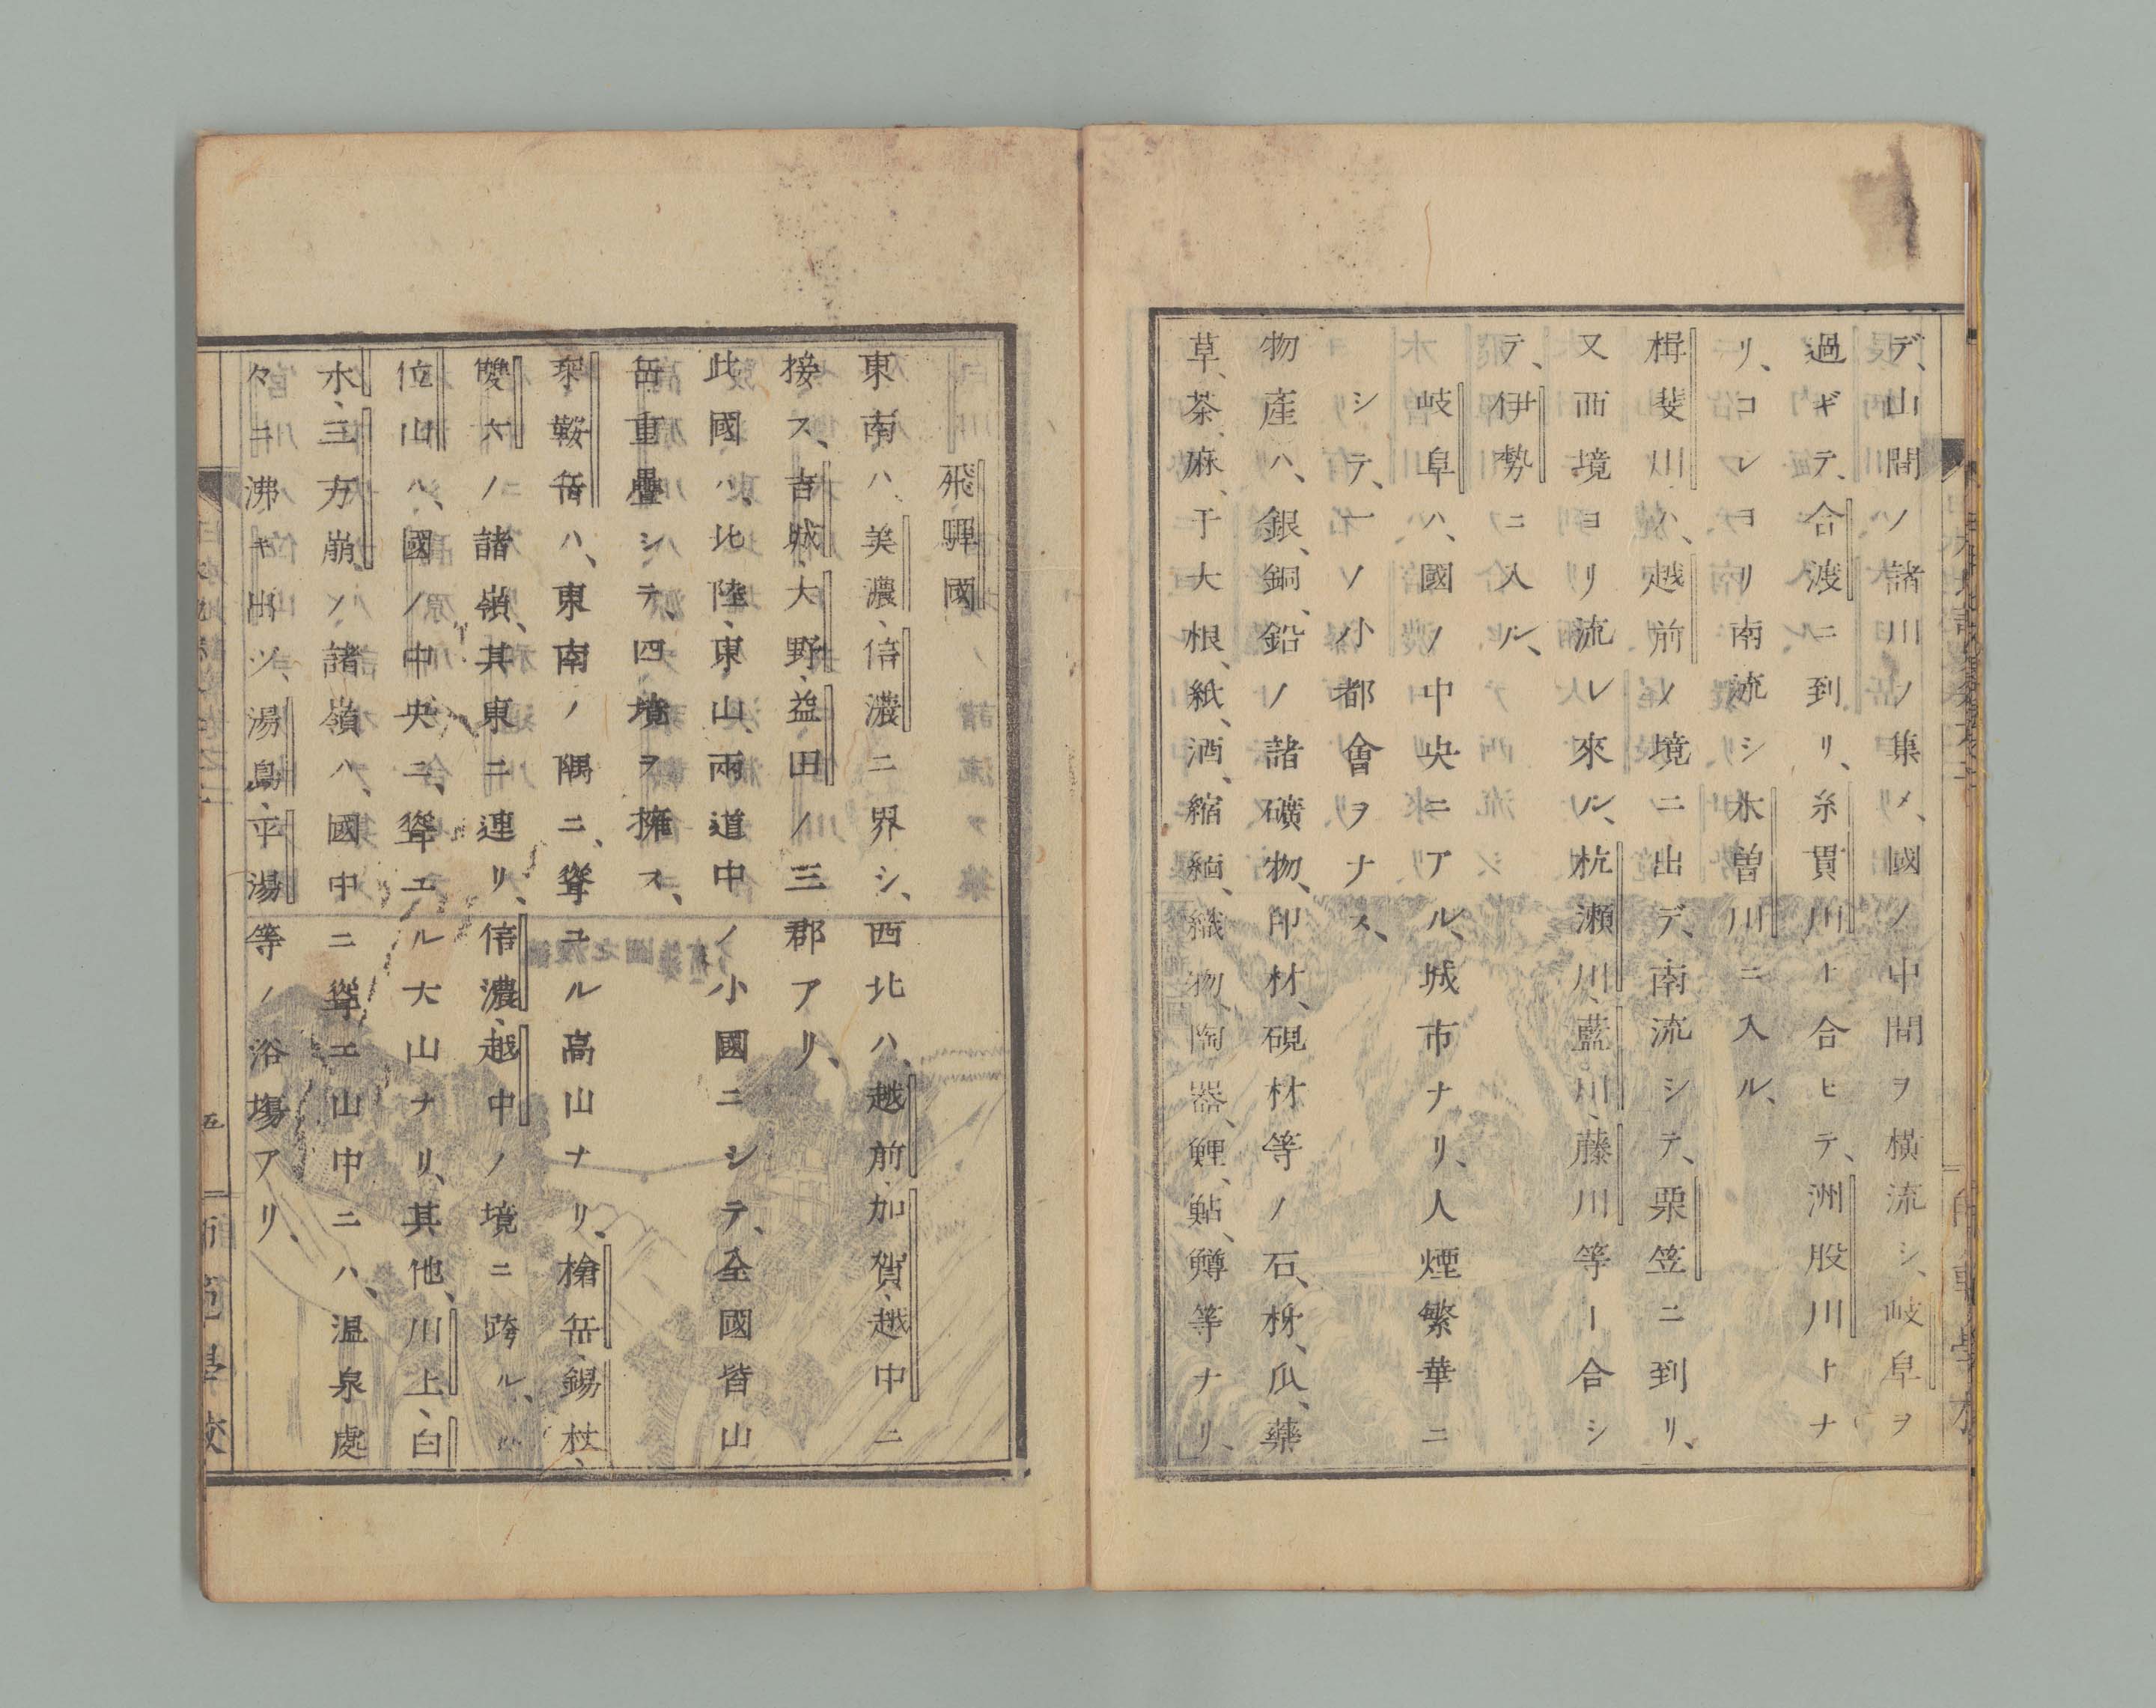 デ、山間ノ諸川ノ集メ、國ノ中間ヲ横流シ、岐阜ヲ
過ギテ、合渡ニ到リ、糸貫川ト合ヒテ、洲股川トナ
リ、コレヨリ南流シ木曽川ニ入ル、
楫斐川ハ、越前ノ境ニ出デ、南流シテ、栗笠ニ到リ、
又西境ヨリ流レ來ル、杭瀬川、藍川、藤川等ー合シ
テ、伊勢ニ入ル、
岐阜ハ、國ノ中央ニアル、城市ナリ、人煙繁華ニ
シテ、一ノ小都會ヲナス、
物産ハ、銀、銅、鉛ノ諸礦物、印材、硯材等ノ石、柹、瓜、藥
草、茶、麻、干大根、紙、酒、縮緬、織物、陶器、鯉、鮎、鱒等ナリ、
飛驒國
東南ハ、美濃、信濃ニ界シ、西北ハ、越前、加賀、越中ニ
接ス、吉城、大野、益田ノ三郡アリ、
此國ハ、北陸、東山、兩道中ノ小國ニシテ、全國皆山
岳重疊シテ、四境ヲ擁ス、
乗鞍岳ハ、東南ノ隅ニ、聳ユル高山ナリ、槍岳、錫杖、
雙六ノ諸嶺、其東ニ連リ、信濃、越中ノ境ニ跨ル、
位山ハ、國ノ中央ニ、聳エル大山ナリ、其他、川上、白
水、三方崩ノ諸嶺ハ、國中ニ聳エ山中ニハ、温泉處
々ニ沸キ出ツ、湯島、平湯等ノ浴塲アリ、
五
師範學校